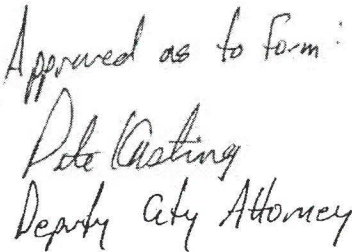 Approved as to form:
Pete Kasting
Deputy City Attorney